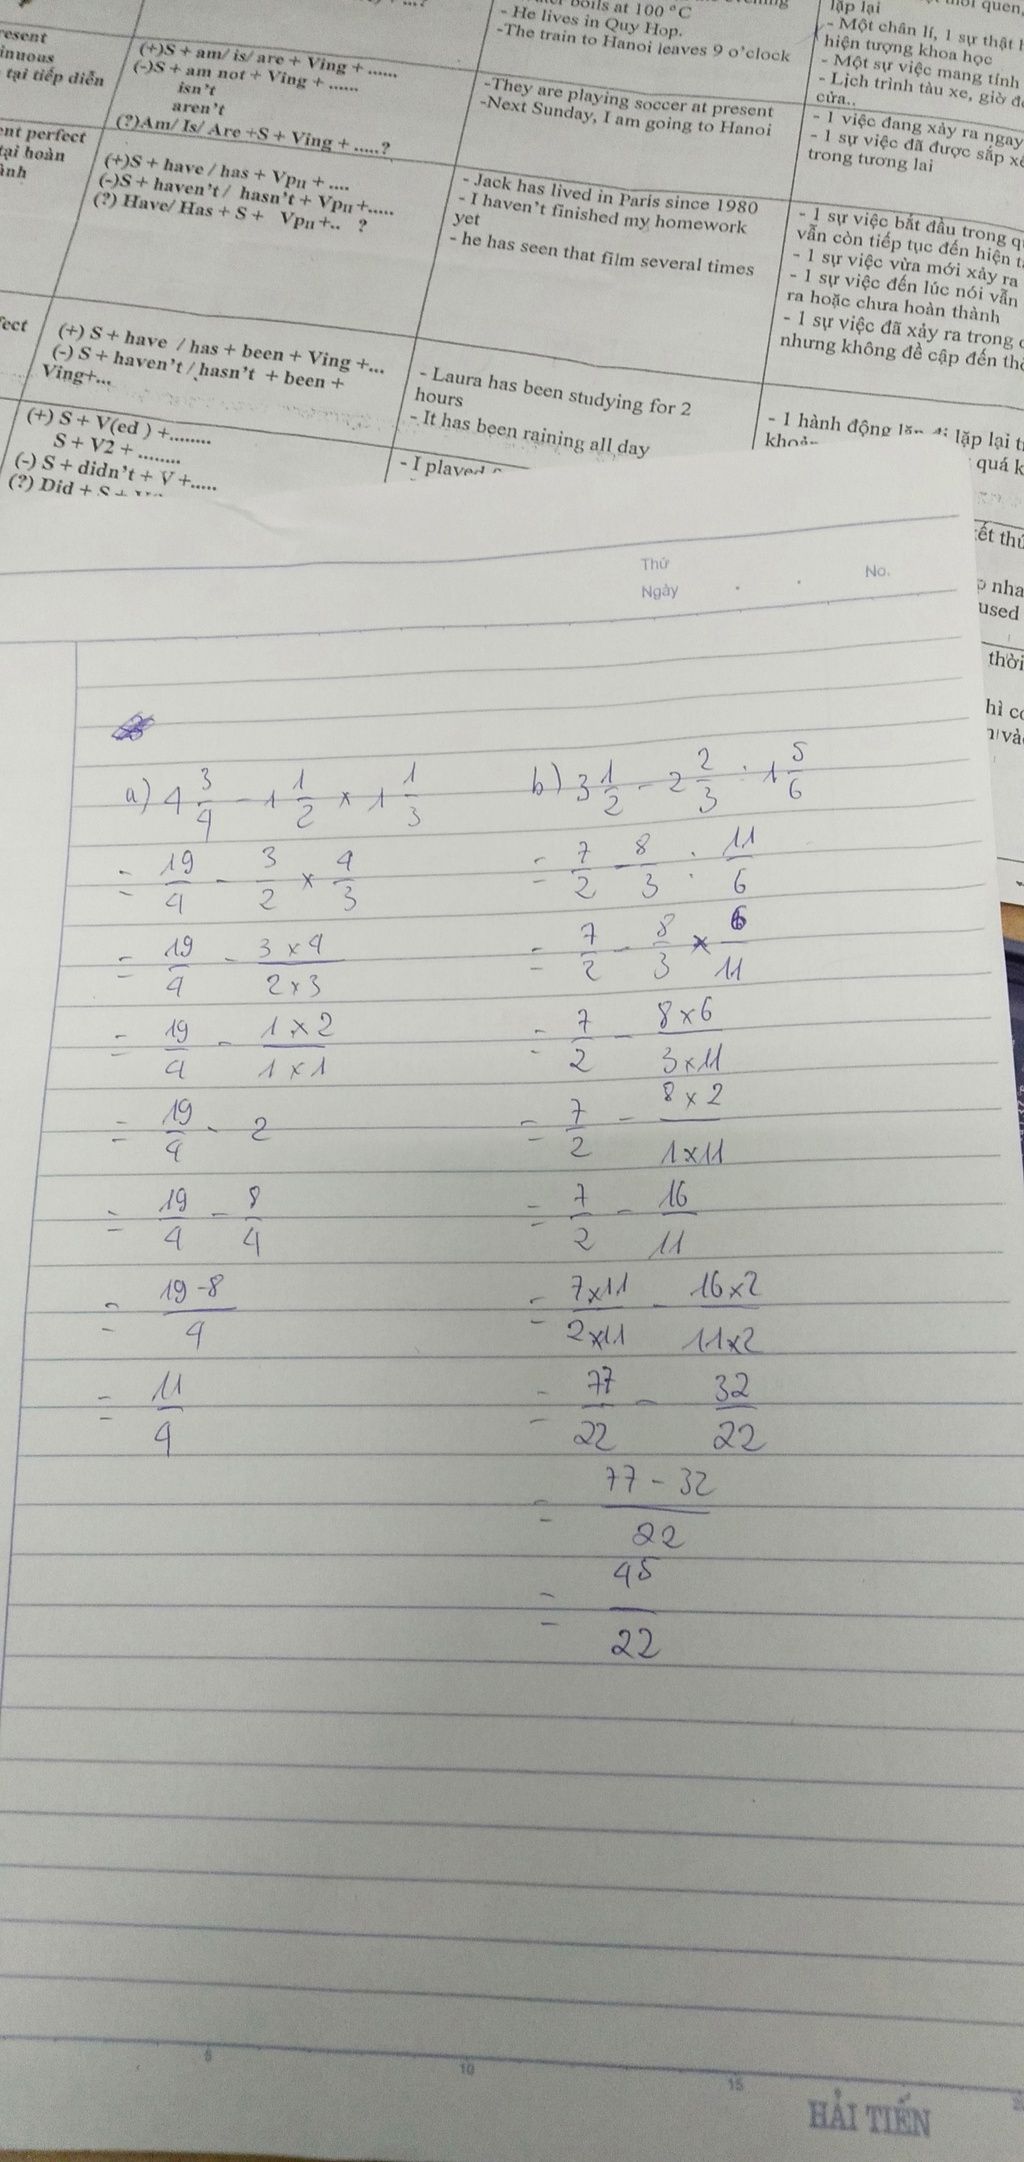 boils at 100 °C
- He lives in Quy Hop.
-The train to Hanoi leaves 9 o'clock
lặp lại
- Một chân lí, 1 sự thật
hiện tượng khoa học
- Một sự việc mang tính
- Lịch trình tàu xe, giờ
cửa..
tại tiếp diễn
(+)S + am/ is/ are + Ving + ......
(-)S + am not + Ving + ......
isn't
aren't
(?)Am/ Is/ Are +S + Ving + .....?
-They are playing soccer at present
-Next Sunday, I am going to Hanoi
- 1 việc đang xảy ra ngay
- 1 sự việc đã được sắp
trong tương lai
perfect
hoàn
(+)S + have / has + VpII + ....
(-)S + haven't / hasn't + VpII +.....
(?) Have/ Has + S + VpII +.. ?
- Jack has lived in Paris since 1980
- I haven't finished my homework
yet
- he has seen that film several times
- 1 sự việc bắt đầu trong
vẫn còn tiếp tục đến hiện
- 1 sự việc vừa mới xảy ra
- 1 sự việc đến lúc nói vẫn
ra hoặc chưa hoàn thành
- 1 sự việc đã xảy ra trong
nhưng không đề cập đến
(+) S + have / has + been + Ving +...
(-) S + haven't / hasn't + been +
Ving+...
- Laura has been studying for 2
hours
- It has been raining all day
- 1 hành động lặp đi lặp lại
quá
(+) S + V(ed ) +........
S + V2 + ........
(-) S + didn't + V +.....
(?) Did + S +
- I played
used
thời
Thứ
Ngày
No.
a) 4 3/4 - 1 1/2 × 1 1/3
= 19/4 - 3/2 × 4/3
= 19/4 - 3×4/2×3
= 19/4 - 1×2/1×1
= 19/4 - 2
= 19/4 - 8/4
= 19-8/4
= 11/4
b) 3 1/2 - 2 2/3 : 1 5/6
= 7/2 - 8/3 : 11/6
= 7/2 - 8/3 × 6/11
= 7/2 - 8×6/3×11
= 7/2 - 8×2/1×11
= 7/2 - 16/11
= 7×11/2×11 - 16×2/11×2
= 77/22 - 32/22
= 77-32/22
= 45/22
5 10 15
HẢI TIẾN